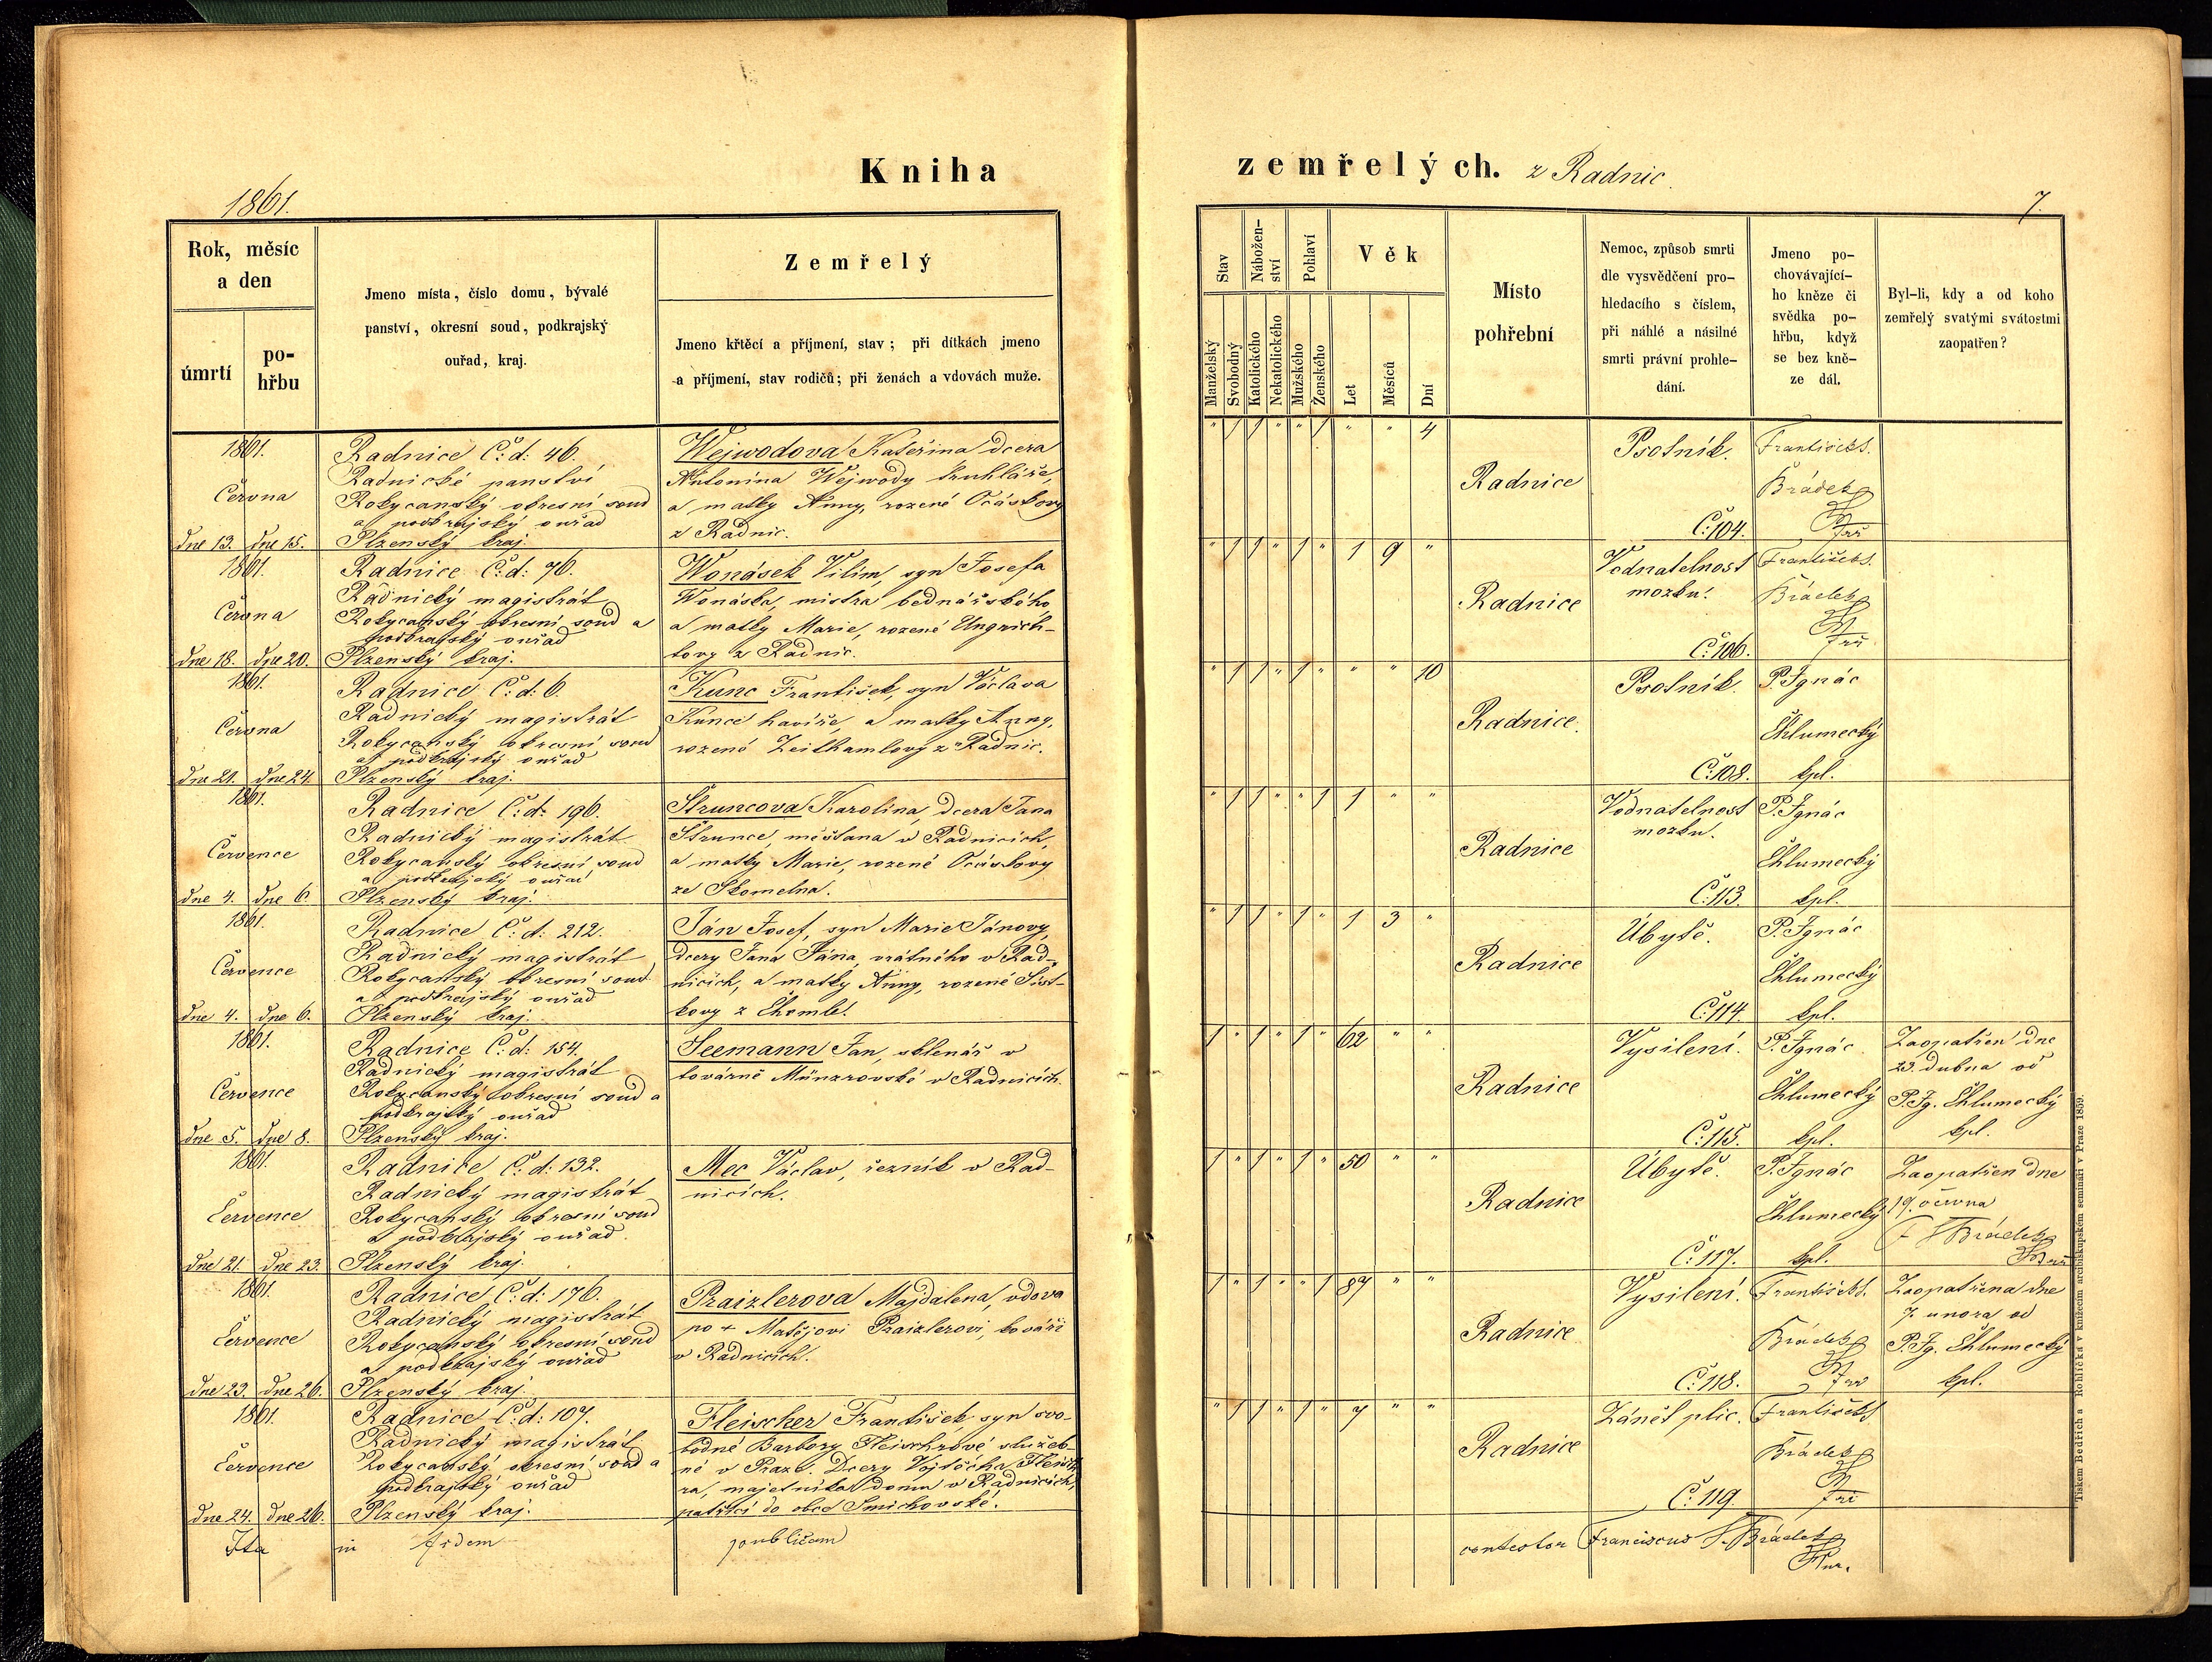 Kniha zemřelých. z Radnic.
1861.
7.
Rok, měsíc
a den
úmrtí
po-
hřbu
Jmeno místa, číslo domu, bývalé
panství, okresní soud, podkrajský
ouřad, kraj.
Zemřelý
Jmeno křtěcí a příjmení, stav; při dítkách jmeno
a příjmení, stav rodičů; při ženách a vdovách muže.
Stav
Manželský
Svobodný
Nábožen-
ství
Katolického
Nekatolického
Pohlaví
Mužského
Ženského
Věk
Let
Měsíců
Dní
Místo
pohřební
Nemoc, způsob smrti
dle vysvědčení pro-
hledacího s číslem,
při náhlé a násilné
smrti právní prohle-
dání.
Jmeno po-
chovávající-
ho kněze či
svědka po-
hřbu, když
se bez kně-
ze dál.
Byl-li, kdy a od koho
zemřelý svatými svátostmi
zaopatřen?
1861.
Června
dne 13. dne 15.
Radnice Č: d: 46.
Radnické panství
Rokycanský okresní soud
a podkrajský ouřad
Plzenský kraj.
Wejwodova Kateřina dcera
Antonína Wejwody truhláře,
a matky Anny, rozené Ocáskovy
z Radnic.
" 1 1 " " 1 " " 4
Radnice
Psotník.
Č: 104.
František S.
Brádek
1861.
Června
dne 18. dne 20.
Radnice Č: d: 76.
Radnický magistrát
Rokycanský okresní soud a
podkrajský ouřad
Plzenský kraj.
Wonásek Vilím, syn Josefa
Wonáska, mistra bednářského
a matky Marie, rozené Ungrich-
tovy z Radnic.
" 1 1 " 1 " 1 9 "
Radnice
Vodnatelnost
mozku.
Č: 106.
František S.
Brádek
1861.
Června
dne 21. dne 24.
Radnice Č: d: 6.
Radnický magistrát
Rokycanský okresní soud
a podkrajský ouřad
Plzenský kraj.
Kunc František, syn Václava
Kunce havíře, a matky Anny,
rozené Zeithamlovy z Radnic.
" 1 1 " 1 " " " 10
Radnice.
Psotník.
Č: 108.
P. Ignác
Chlumecký
kpl.
1861.
Července
dne 4. dne 6.
Radnice Č: d: 196.
Radnický magistrát
Rokycanský okresní soud
a podkrajský ouřad
Plzenský kraj.
Štruncova Karolina, dcera Jana
Štrunce, měšťana v Radnicích,
a matky Marie, rozené Ocáskovy
ze Skomelna.
" 1 1 " " 1 1 " "
Radnice
Vodnatelnost
mozku.
Č: 113.
P. Ignác
Chlumecký
kpl.
1861.
Července
dne 4. dne 6.
Radnice Č: d: 212.
Radnický magistrát
Rokycanský okresní soud
a podkrajský ouřad
Plzenský kraj.
Ján Josef, syn Marie Jánovy,
dcery Jana Jána, vrátného v Rad-
nicích, a matky Anny, rozené
kovy z
" 1 1 " 1 " 1 3 "
Radnice
Úbytě.
Č: 114.
P. Ignác
Chlumecký
kpl.
1861.
Července
dne 5. dne 8.
Radnice Č: d: 154.
Radnický magistrát
Rokycanský okresní soud a
podkrajský ouřad
Plzenský kraj.
Seemann Jan, sklenář v
továrně Münzrovské v Radnicích.
1 " 1 " 1 " 62 " "
Radnice
Vysilení.
Č: 115.
P. Ignác
Chlumecký
kpl.
Zaopatřen dne
23. dubna od
P. Ig. Chlumecký
kpl.
1861.
Července
dne 21. dne 23.
Radnice Č: d: 132.
Radnický magistrát
Rokycanský okresní soud
a podkrajský ouřad.
Plzenský kraj.
Mec Václav, řezník v Rad-
nicích.
1 " 1 " 1 " 50 " "
Radnice
Úbytě.
Č: 117.
P. Ignác
Chlumecký
kpl.
Zaopatřen dne
19. června
Brádek
1861.
Července
dne 23. dne 26.
Radnice Č: d: 176.
Radnický magistrát
Rokycanský okresní soud
a podkrajský ouřad
Plzenský kraj.
Praizlerova Majdalena, vdova
po + Matějovi Praizlerovi, kováři
v Radnicích.
1 " 1 " " 1 87 " "
Radnice
Vysilení.
Č: 118.
František S.
Brádek
Zaopatřena dne
7. unora od
P. Ig. Chlumecký
kpl.
1861.
Července
dne 24. dne 26.
Radnice Č: d: 107.
Radnický magistrát
Rokycanský okresní soud a
podkrajský ouřad
Plzenský kraj.
Fleischer František, syn svo-
bodné Barbory Fleischrové služeb-
né v Praze. Dcery Vojtěcha Fleisch-
ra, majetníka domu v Radnicích,
patřící do obce Smichovské.
" 1 1 " 1 " 7 " "
Radnice
Zánět plic.
Č: 119.
František S.
Brádek
Ita in fidem publicam contestor Franciscus S. Brádek
Tiskem Bedřich a Rohlíčka v knížecím arcibiskupském semináři v Praze 1859.